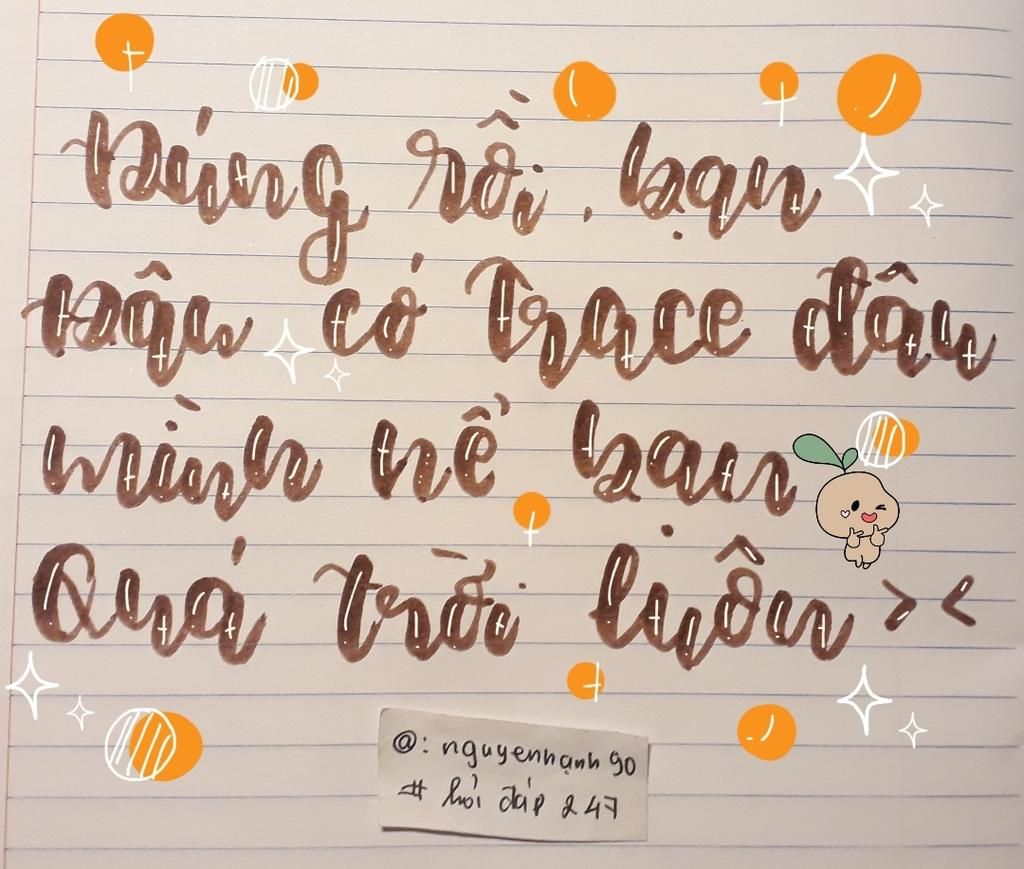 Đúng rồi, bạn
Đậu có Trace đâu
mình nể bạn
Quá trời luôn ><
@: nguyenhạnh90
# hỏi đáp 247